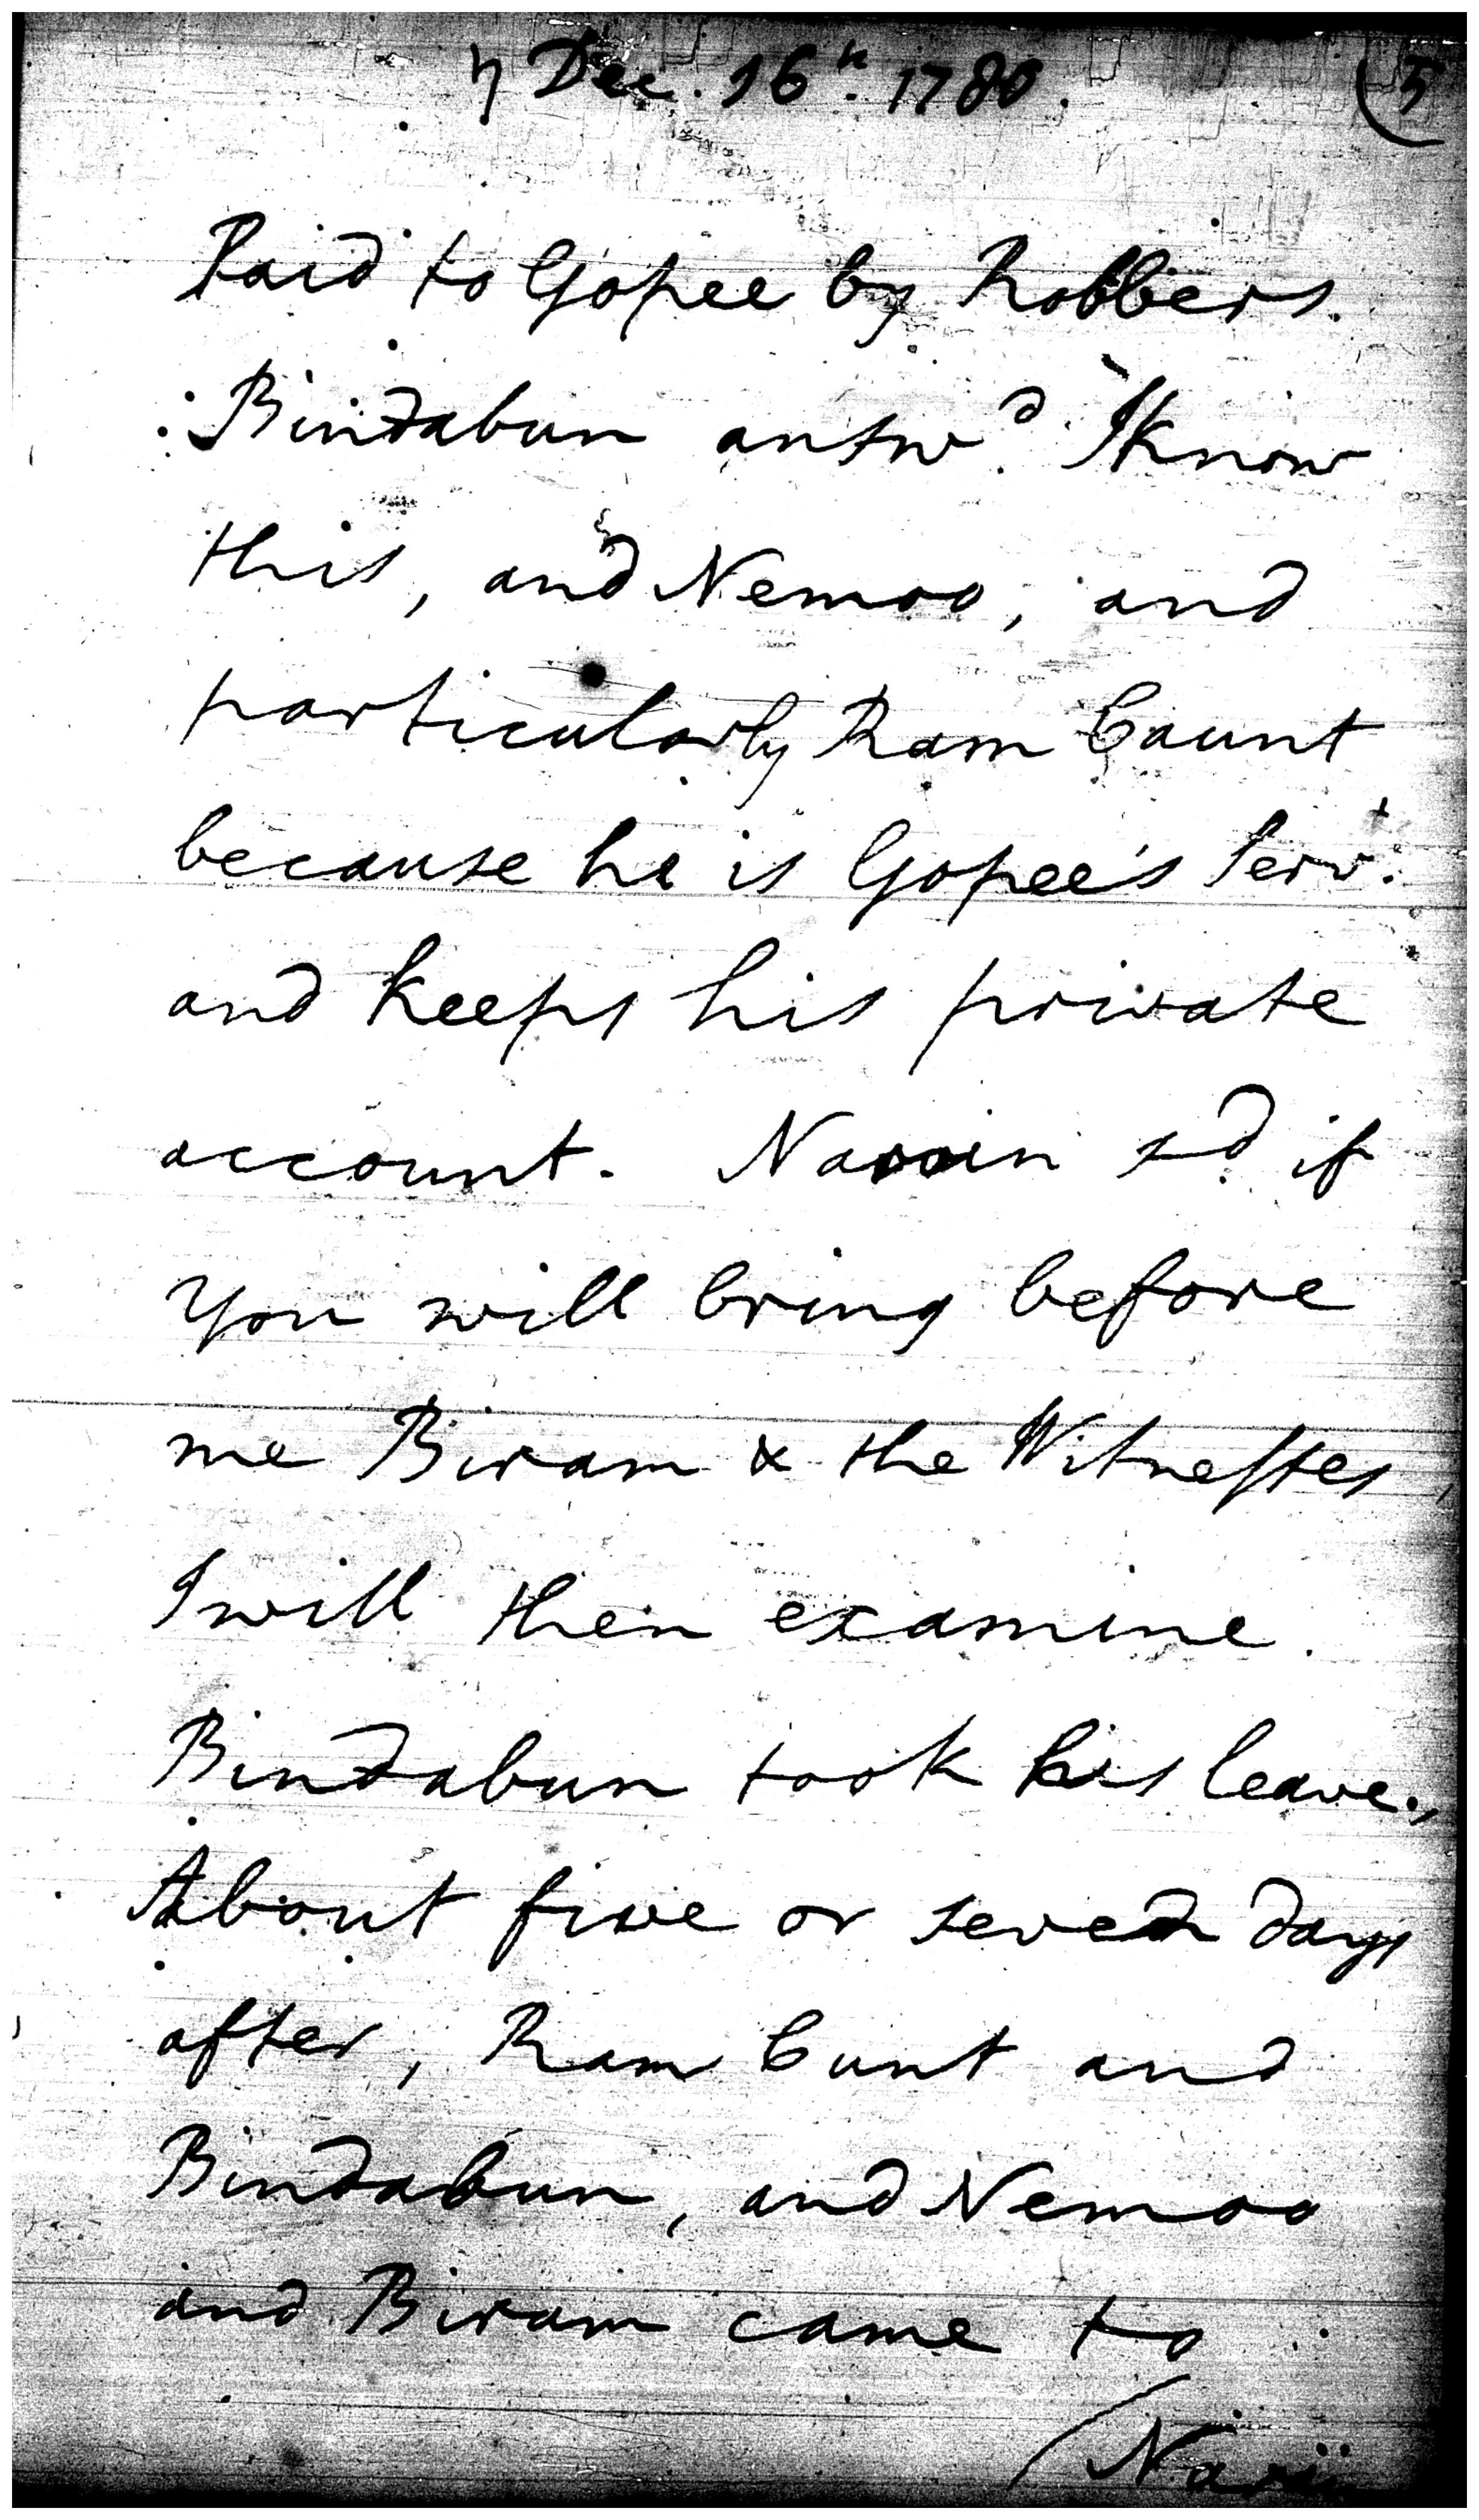 ♄ Dec. 16th. 1780. (5
Paid to Gopee by Robbers.
Bindabun answd. I know
this, and Nemoo, and
particularly Ram Caunt
because he is Gopee's Servt.
and keeps his private
account. Narain sd. if
you will bring before
me Biram & the Witnesses,
I will then examine.
Bindabun took his leave.,
About five or seven days
after, Ram Cunt and
Bindabun, and Nemoo
and Biram came to